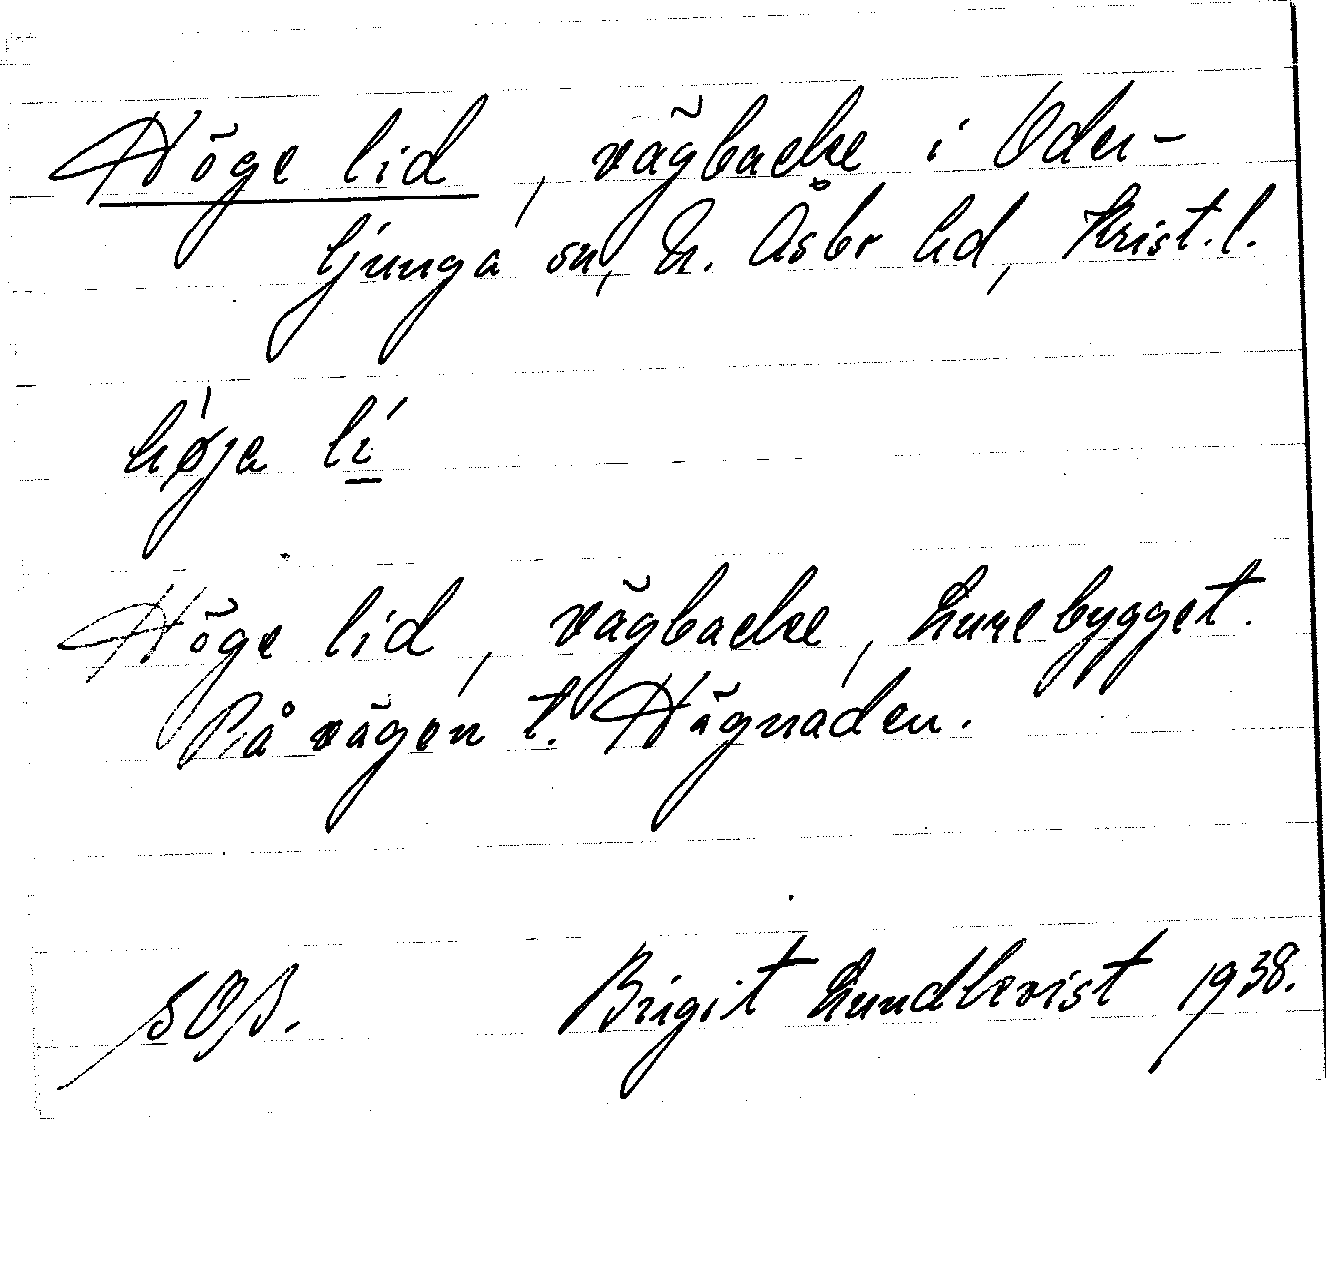 Höge lid, vägbacke i Oder-
ljunga sn, N. Åsbo hd, Krist. l.
høja li
Höge lid, vägbacke, Lurebygget.
På vägen t. Hägnaden.
Birgit Lundkvist 1938.